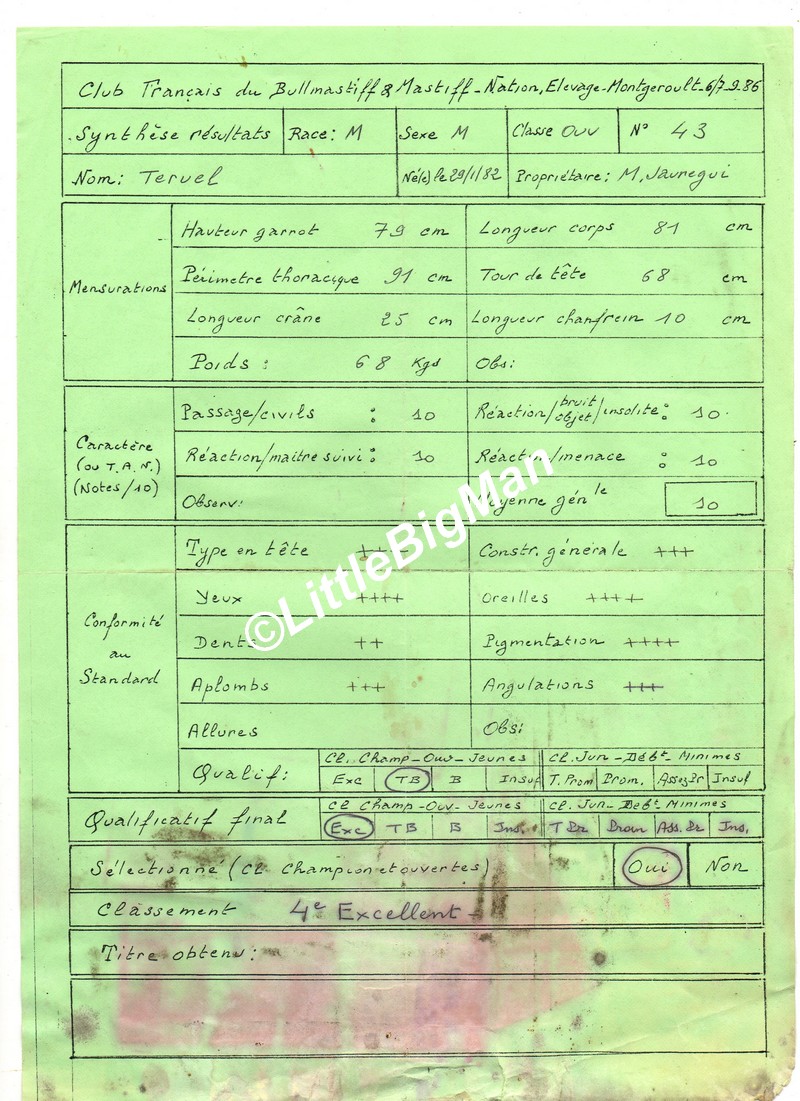 Club Français du Bullmastiff & Mastiff - Nation, Elevage - Montgeroult - 6/7-9-86
Synthèse résultats Race: M Sexe M Classe Ouv N° 43
Nom: Teruel Né(e) le 29/1/82 Propriétaire: M. Jauregui
Mensurations
Hauteur garrot 79 cm Longueur corps 81 cm
Périmetre thoracique 91 cm Tour de tête 68 cm
Longueur crâne 25 cm Longueur chanfrein 10 cm
Poids : 68 Kgs Obs:
Caractère (ou T.A.N.) (Notes/10)
Passage/civils : 10 Réaction/bruit objet/insolite: 10
Réaction/maitre suivi : 10 Réaction/menace : 10
Observ: Moyenne génle 10
Conformité au Standard
Type en tête ++++ Constr. générale +++
Yeux ++++ Oreilles ++++
Dents ++ Pigmentation ++++
Aplombs +++ Angulations +++
Allures Obs:
Qualif: Cl. Champ-Ouv-Jeunes Cl. Jun-Débt-Minimes
Exc TB B Insuf T. Prom Prom. Assez Pr Insuf
Qualificatif final Cl Champ-Ouv-Jeunes Cl. Jun-Debt Minimes
Exc TB B Ins. T Pr Prom Ass. Pr Ins.
Sélectionné (Cl Champion et ouvertes) Oui Non
Classement 4e Excellent -
Titre obtenu:
©LittleBigMan